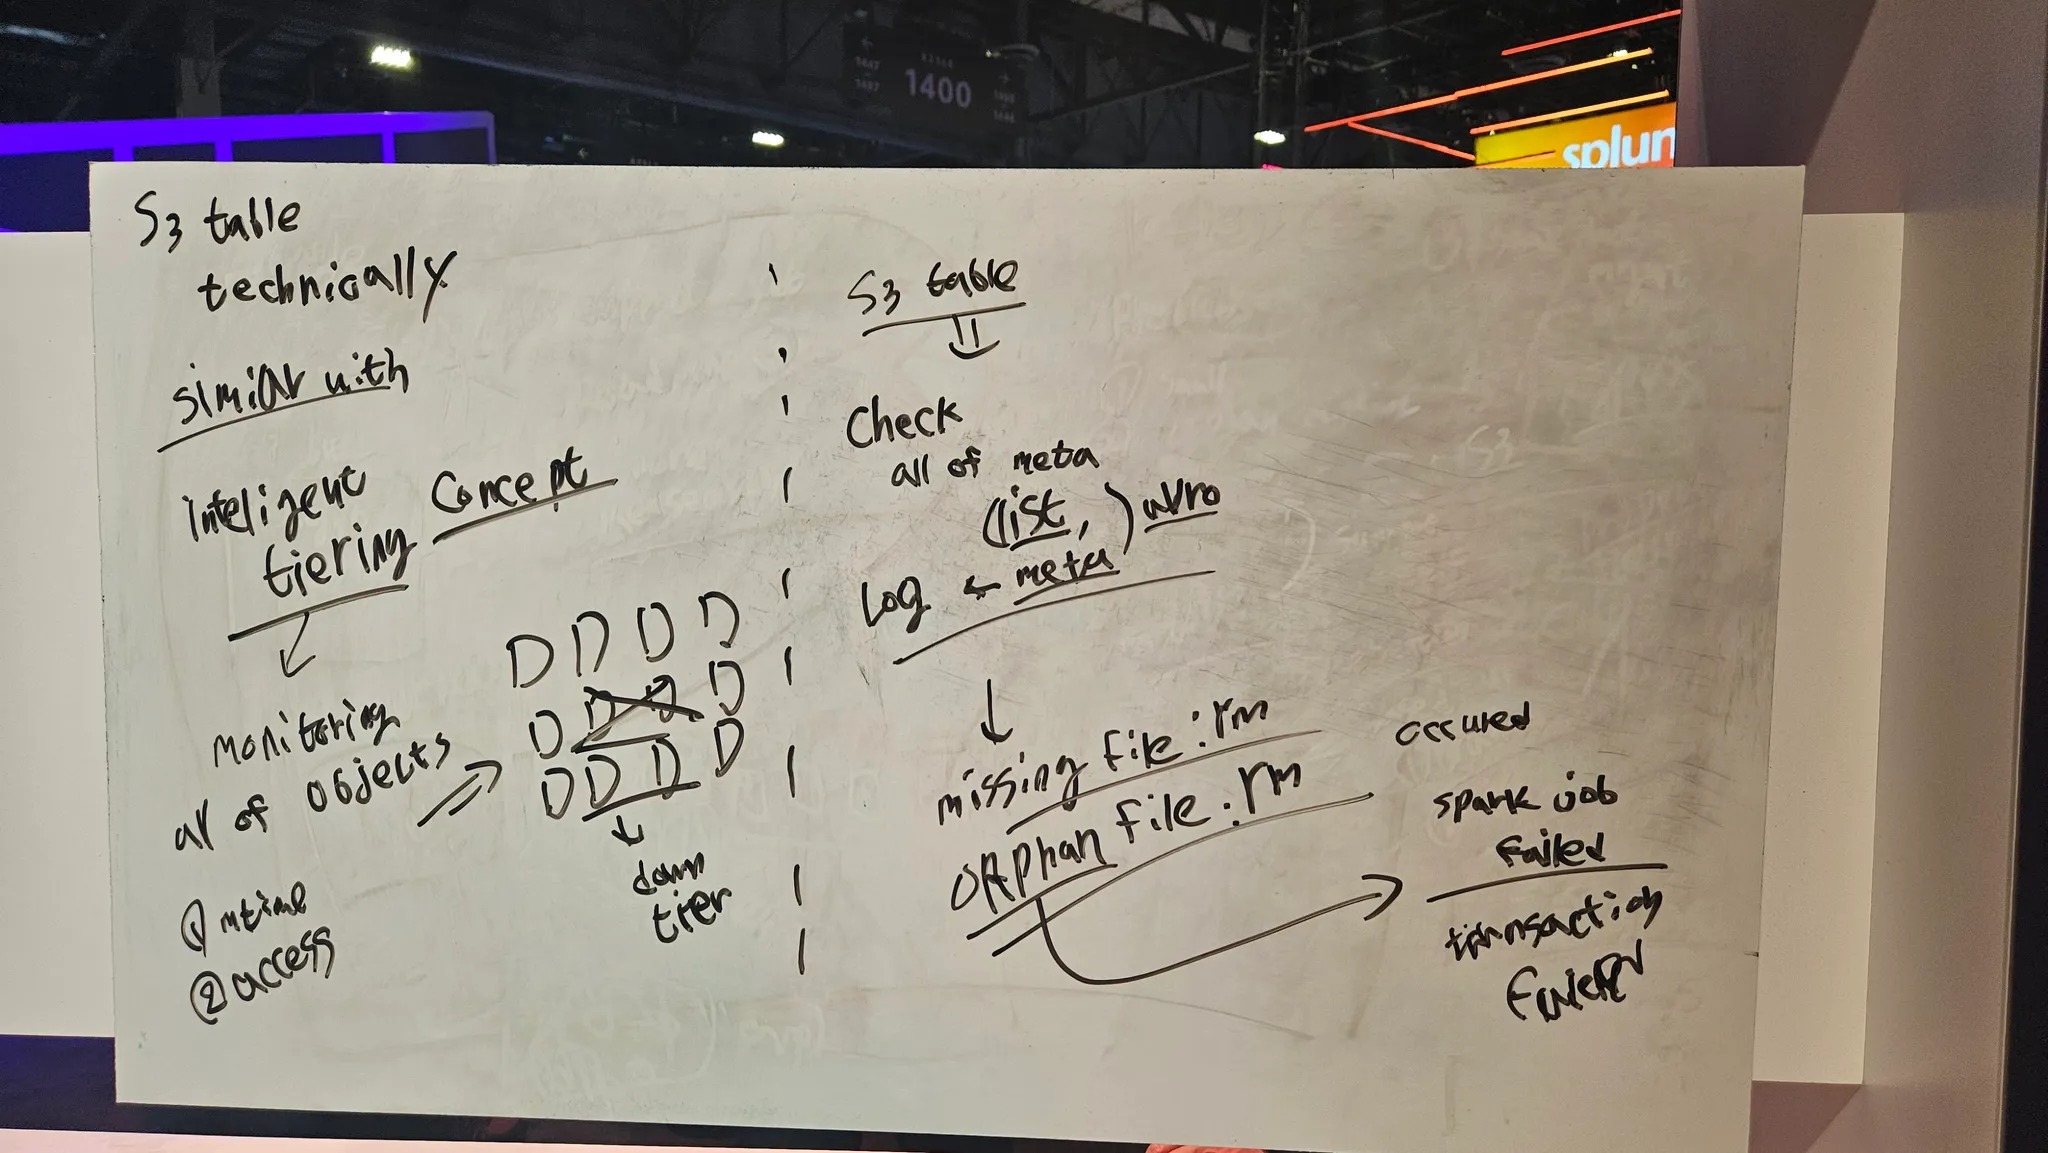 1400
splun
S3 table
technically
similar with
inteligent
tiering concept
monitoring
all of objects
① mtime
② access
D D D D
D D D D
D D D D
down
tier
S3 table
Check
all of meta
(list, ) avro
Log ← meta
missing file : rm
orphan file : rm
occured
spark job
failed
transaction